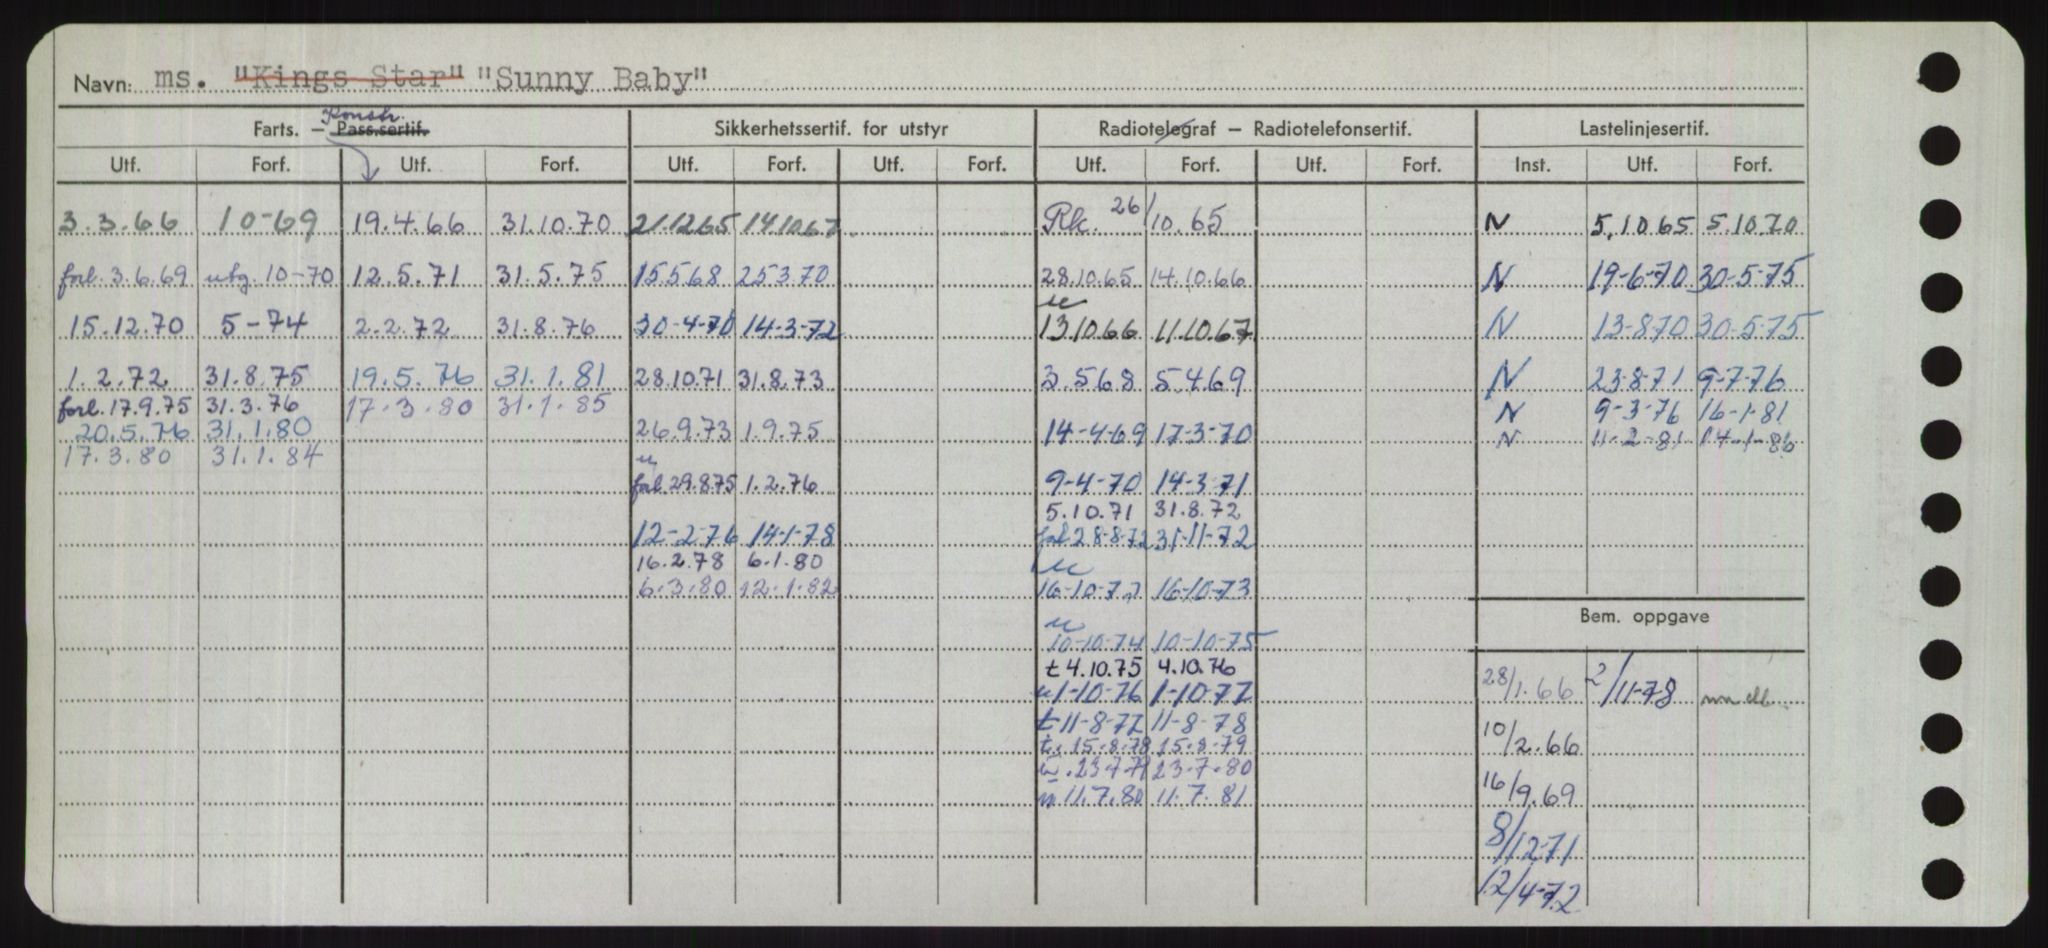 Navn: ms. "Kings Star" "Sunny Baby"
Konstr.
Farts. – Pass.sertif. Sikkerhetssertif. for utstyr Radiotelegraf – Radiotelefonsertif. Lastelinjesertif.
Utf. Forf. Utf. Forf. Utf. Forf. Utf. Forf. Utf. Forf. Utf. Forf. Inst. Utf. Forf.
3.3.66 10-69 19.4.66 31.10.70 21.12.65 14.10.67 Rk. 26/10.65 N 5.10.65 5.10.70
forl. 3.6.69 utg. 10-70 12.5.71 31.5.75 15.5.68 25.3.70 28.10.65 14.10.66 N 19-6-70 30-5-75
u
15.12.70 5-74 2.2.72 31.8.76 30-4-70 14-3-72 13.10.66 11.10.67 N 13-8-70 30-5-75
1.2.72 31.8.75 19.5.76 31.1.81 28.10.71 31.8.73 3.5.68 5.4.69 N 23-8-71 9-7-76
forl. 17.9.75 31.3.76 17.3.80 31.1.85 N 9-3-76 16-1-81
20.5.76 31.1.80 26.9.73 1.9.75 14-4-69 17-3-70 N 11-2-81 14-1-86
17.3.80 31.1.84 u
forl. 29.8.75 1.2.76 9-4-70 14-3-71
5.10.71 31.8.72
12-2-76 14-1-78 forl 28-8-72 31-11-72
16.2.78 6.1.80 u
6.3.80 12.1.82 16-10-72 16-10-73
Bem. oppgave
u
10-10-74 10-10-75
t 4.10.75 4.10.76
u 1-10-76 1-10-77 28/1.66 2/11-78
t 11-8-77 11-8-78
t. 15.8.78 15.8.79 10/2.66
u. 23.7.79 23.7.80
u 11.7.80 11.7.81 16/9.69
8/12-71
12/4-72